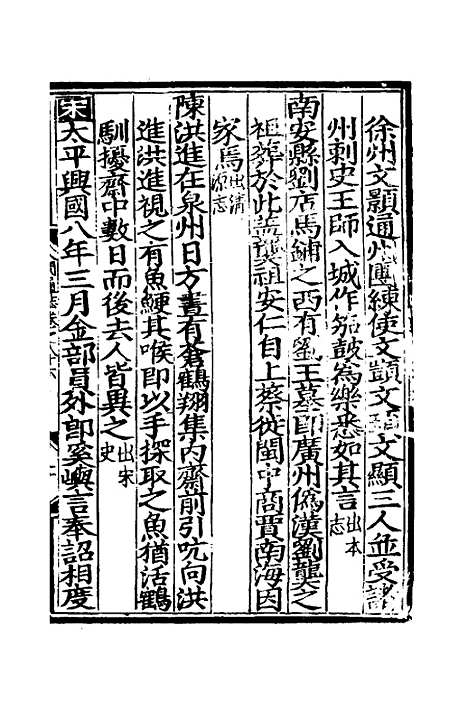 徐州文顥通州團練使文顗文頊文顯三人並受諸
州刺史王師入城作笳鼓為樂悉如其言出本志
南安縣劉店馬鋪之西有劉王墓即廣州偽漢劉龑之
祖葬於此蓋龑祖安仁自上蔡徙閩中商賈南海因
家焉出清源志
陳洪進在泉州日方晝有蒼鶴翔集内齋前引吭向洪
進洪進視之有魚鯁其喉即以手探取之魚猶活鶴
馴擾齋中數日而後去人皆異之出宋史
宋太平興國八年三月金部員外郎奚嶼言奉詔相度